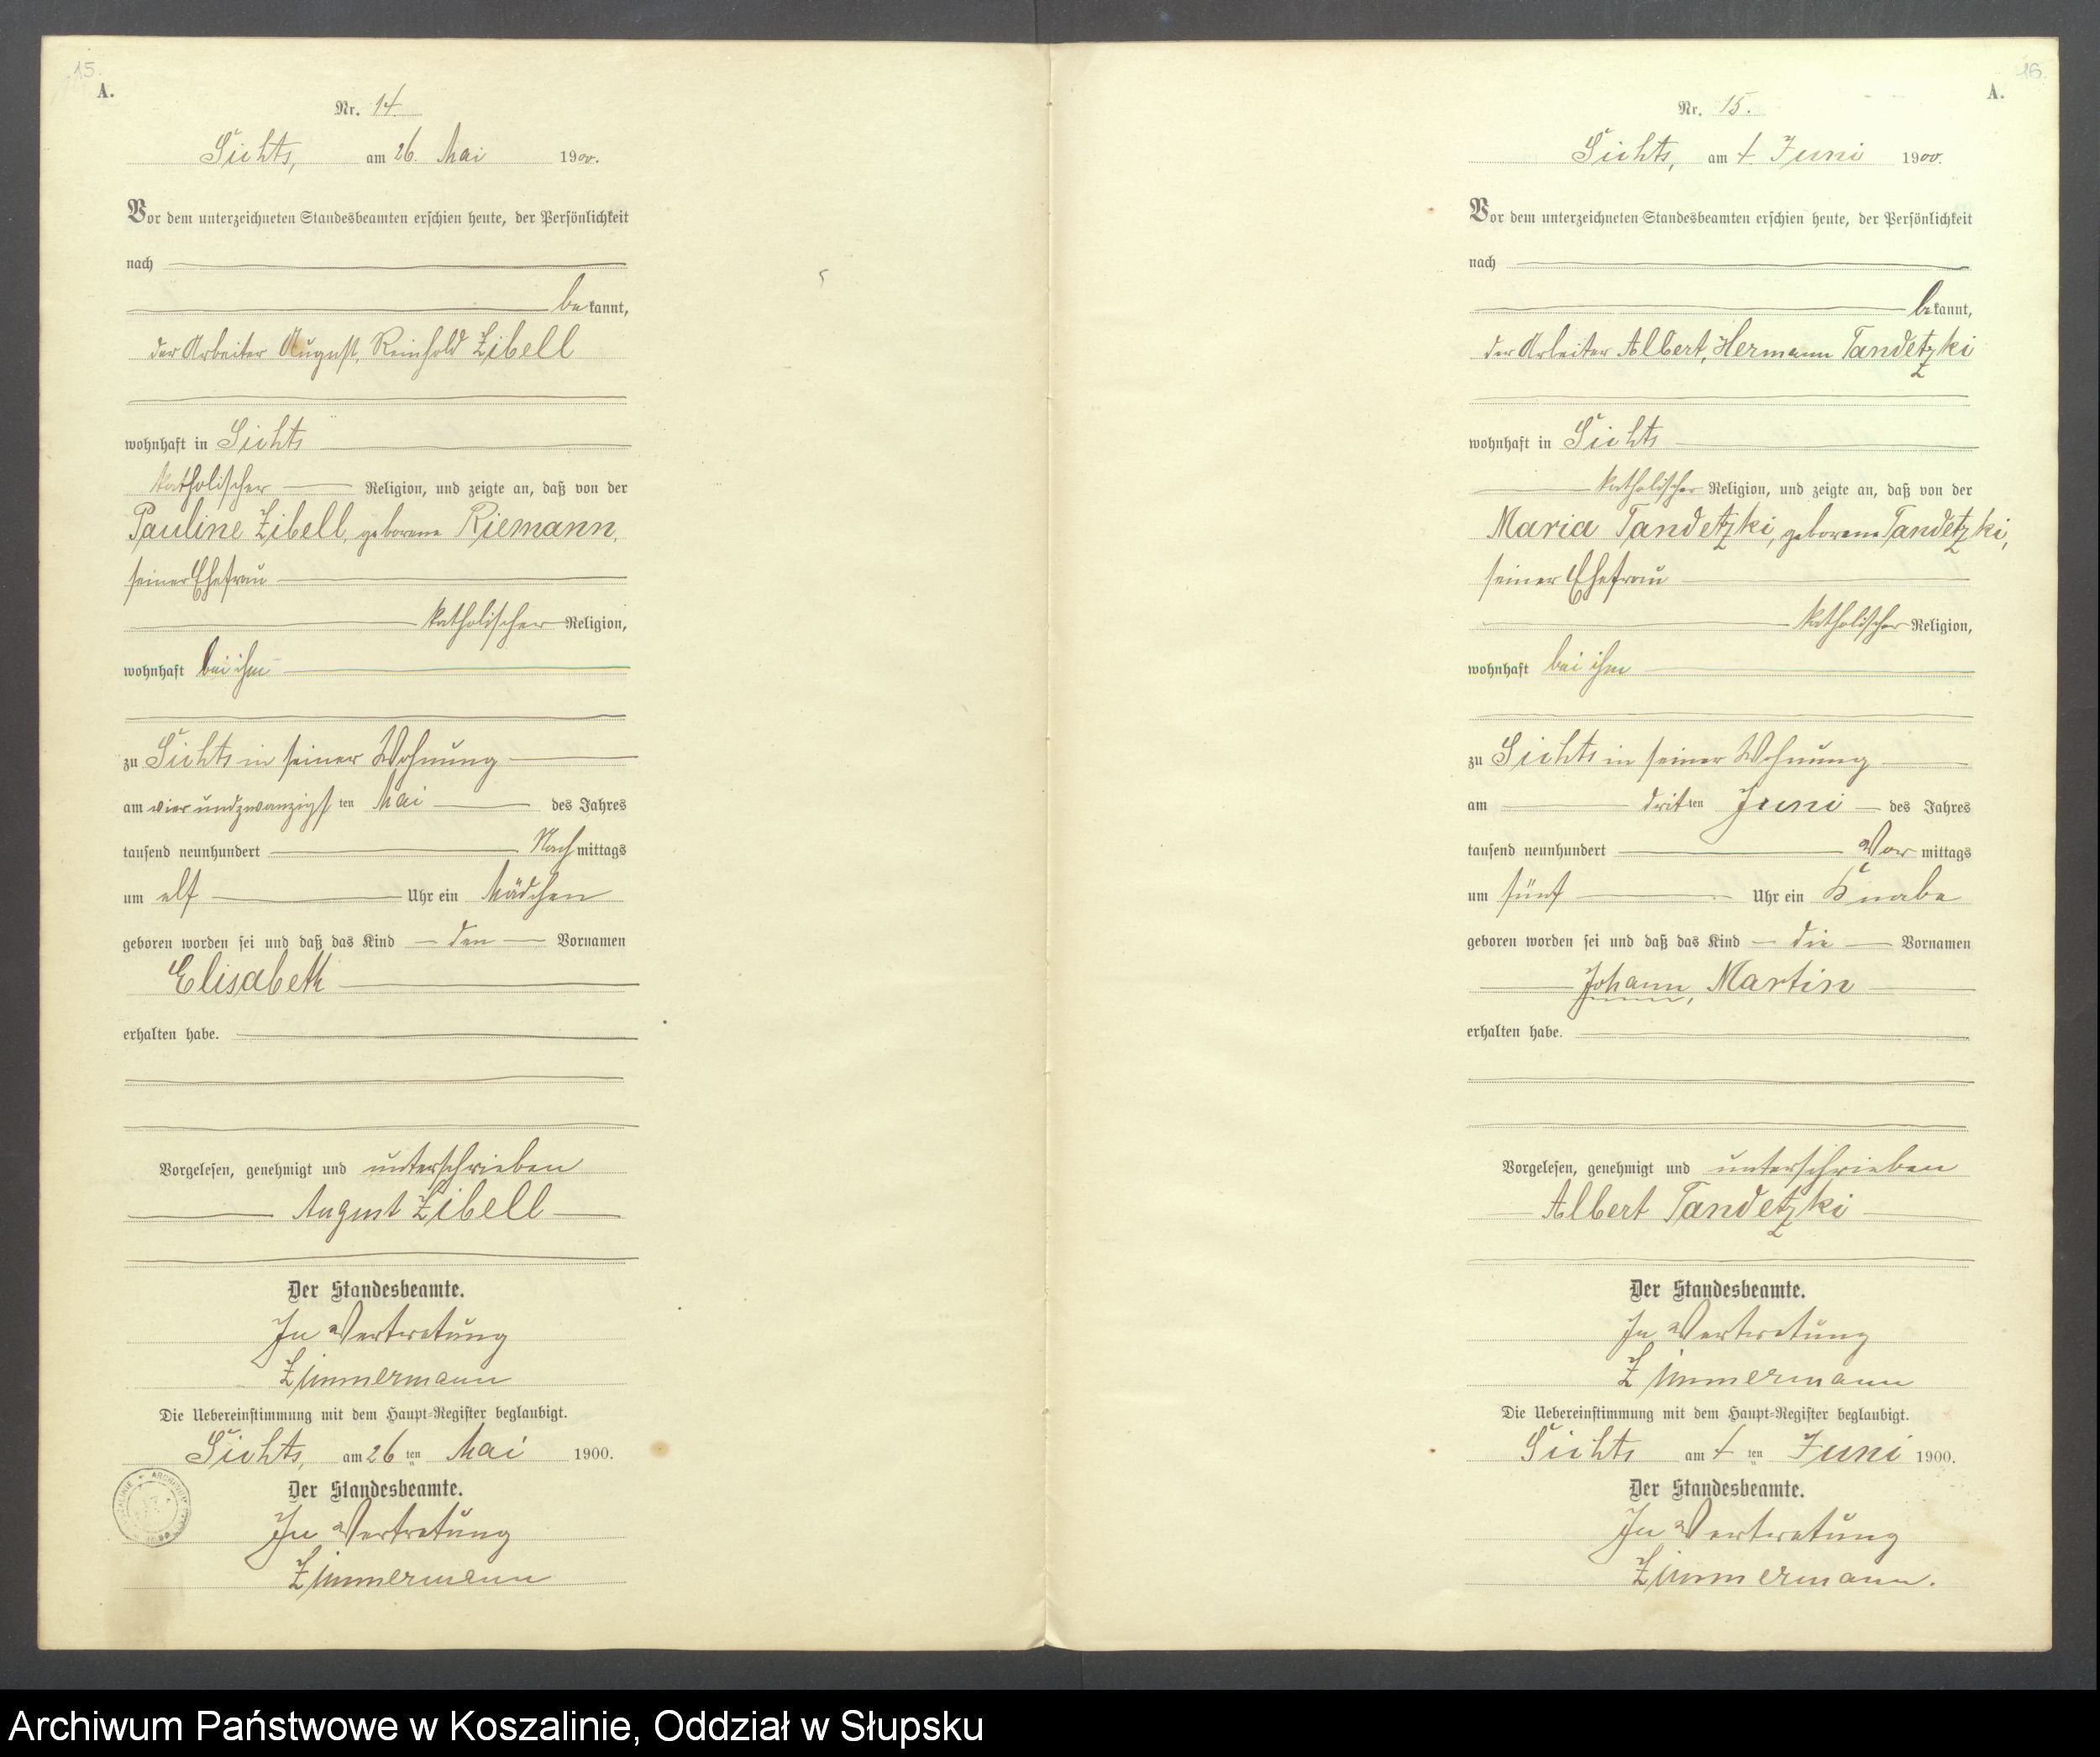 15.
A.
Nr. 14.
Sichts, am 26. Mai 1900.
Vor dem unterzeichneten Standesbeamten erschien heute, der Persönlichkeit
nach
bekannt,
der Arbeiter August, Reinhold Zibell
wohnhaft in Sichts
katholischer Religion, und zeigte an, daß von der
Pauline Zibell, geborene Riemann,
seiner Ehefrau
katholischer Religion,
wohnhaft bei ihm
zu Sichts in seiner Wohnung
am vierundzwanzigsten Mai des Jahres
tausend neunhundert Nachmittags
um elf Uhr ein Mädchen
geboren worden sei und daß das Kind den Vornamen
Elisabeth
erhalten habe.
Vorgelesen, genehmigt und unterschrieben
August Zibell
Der Standesbeamte.
In Vertretung
Zimmermann
Die Uebereinstimmung mit dem Haupt-Register beglaubigt.
Sichts, am 26ten Mai 1900.
Der Standesbeamte.
In Vertretung
Zimmermann
16.
A.
Nr. 15.
Sichts, am 4. Juni 1900.
Vor dem unterzeichneten Standesbeamten erschien heute, der Persönlichkeit
nach
bekannt,
der Arbeiter Albert, Hermann Tandetzki
wohnhaft in Sichts
katholischer Religion, und zeigte an, daß von der
Maria Tandetzki, geborene Tandetzki,
seiner Ehefrau
katholischer Religion,
wohnhaft bei ihm
zu Sichts in seiner Wohnung
am dritten Juni des Jahres
tausend neunhundert Vormittags
um fünf Uhr ein Knabe
geboren worden sei und daß das Kind die Vornamen
Johann, Martin
erhalten habe.
Vorgelesen, genehmigt und unterschrieben
Albert Tandetzki
Der Standesbeamte.
In Vertretung
Zimmermann
Die Uebereinstimmung mit dem Haupt-Register beglaubigt.
Sichts am 4ten Juni 1900.
Der Standesbeamte.
In Vertretung
Zimmermann.
Archiwum Państwowe w Koszalinie, Oddział w Słupsku